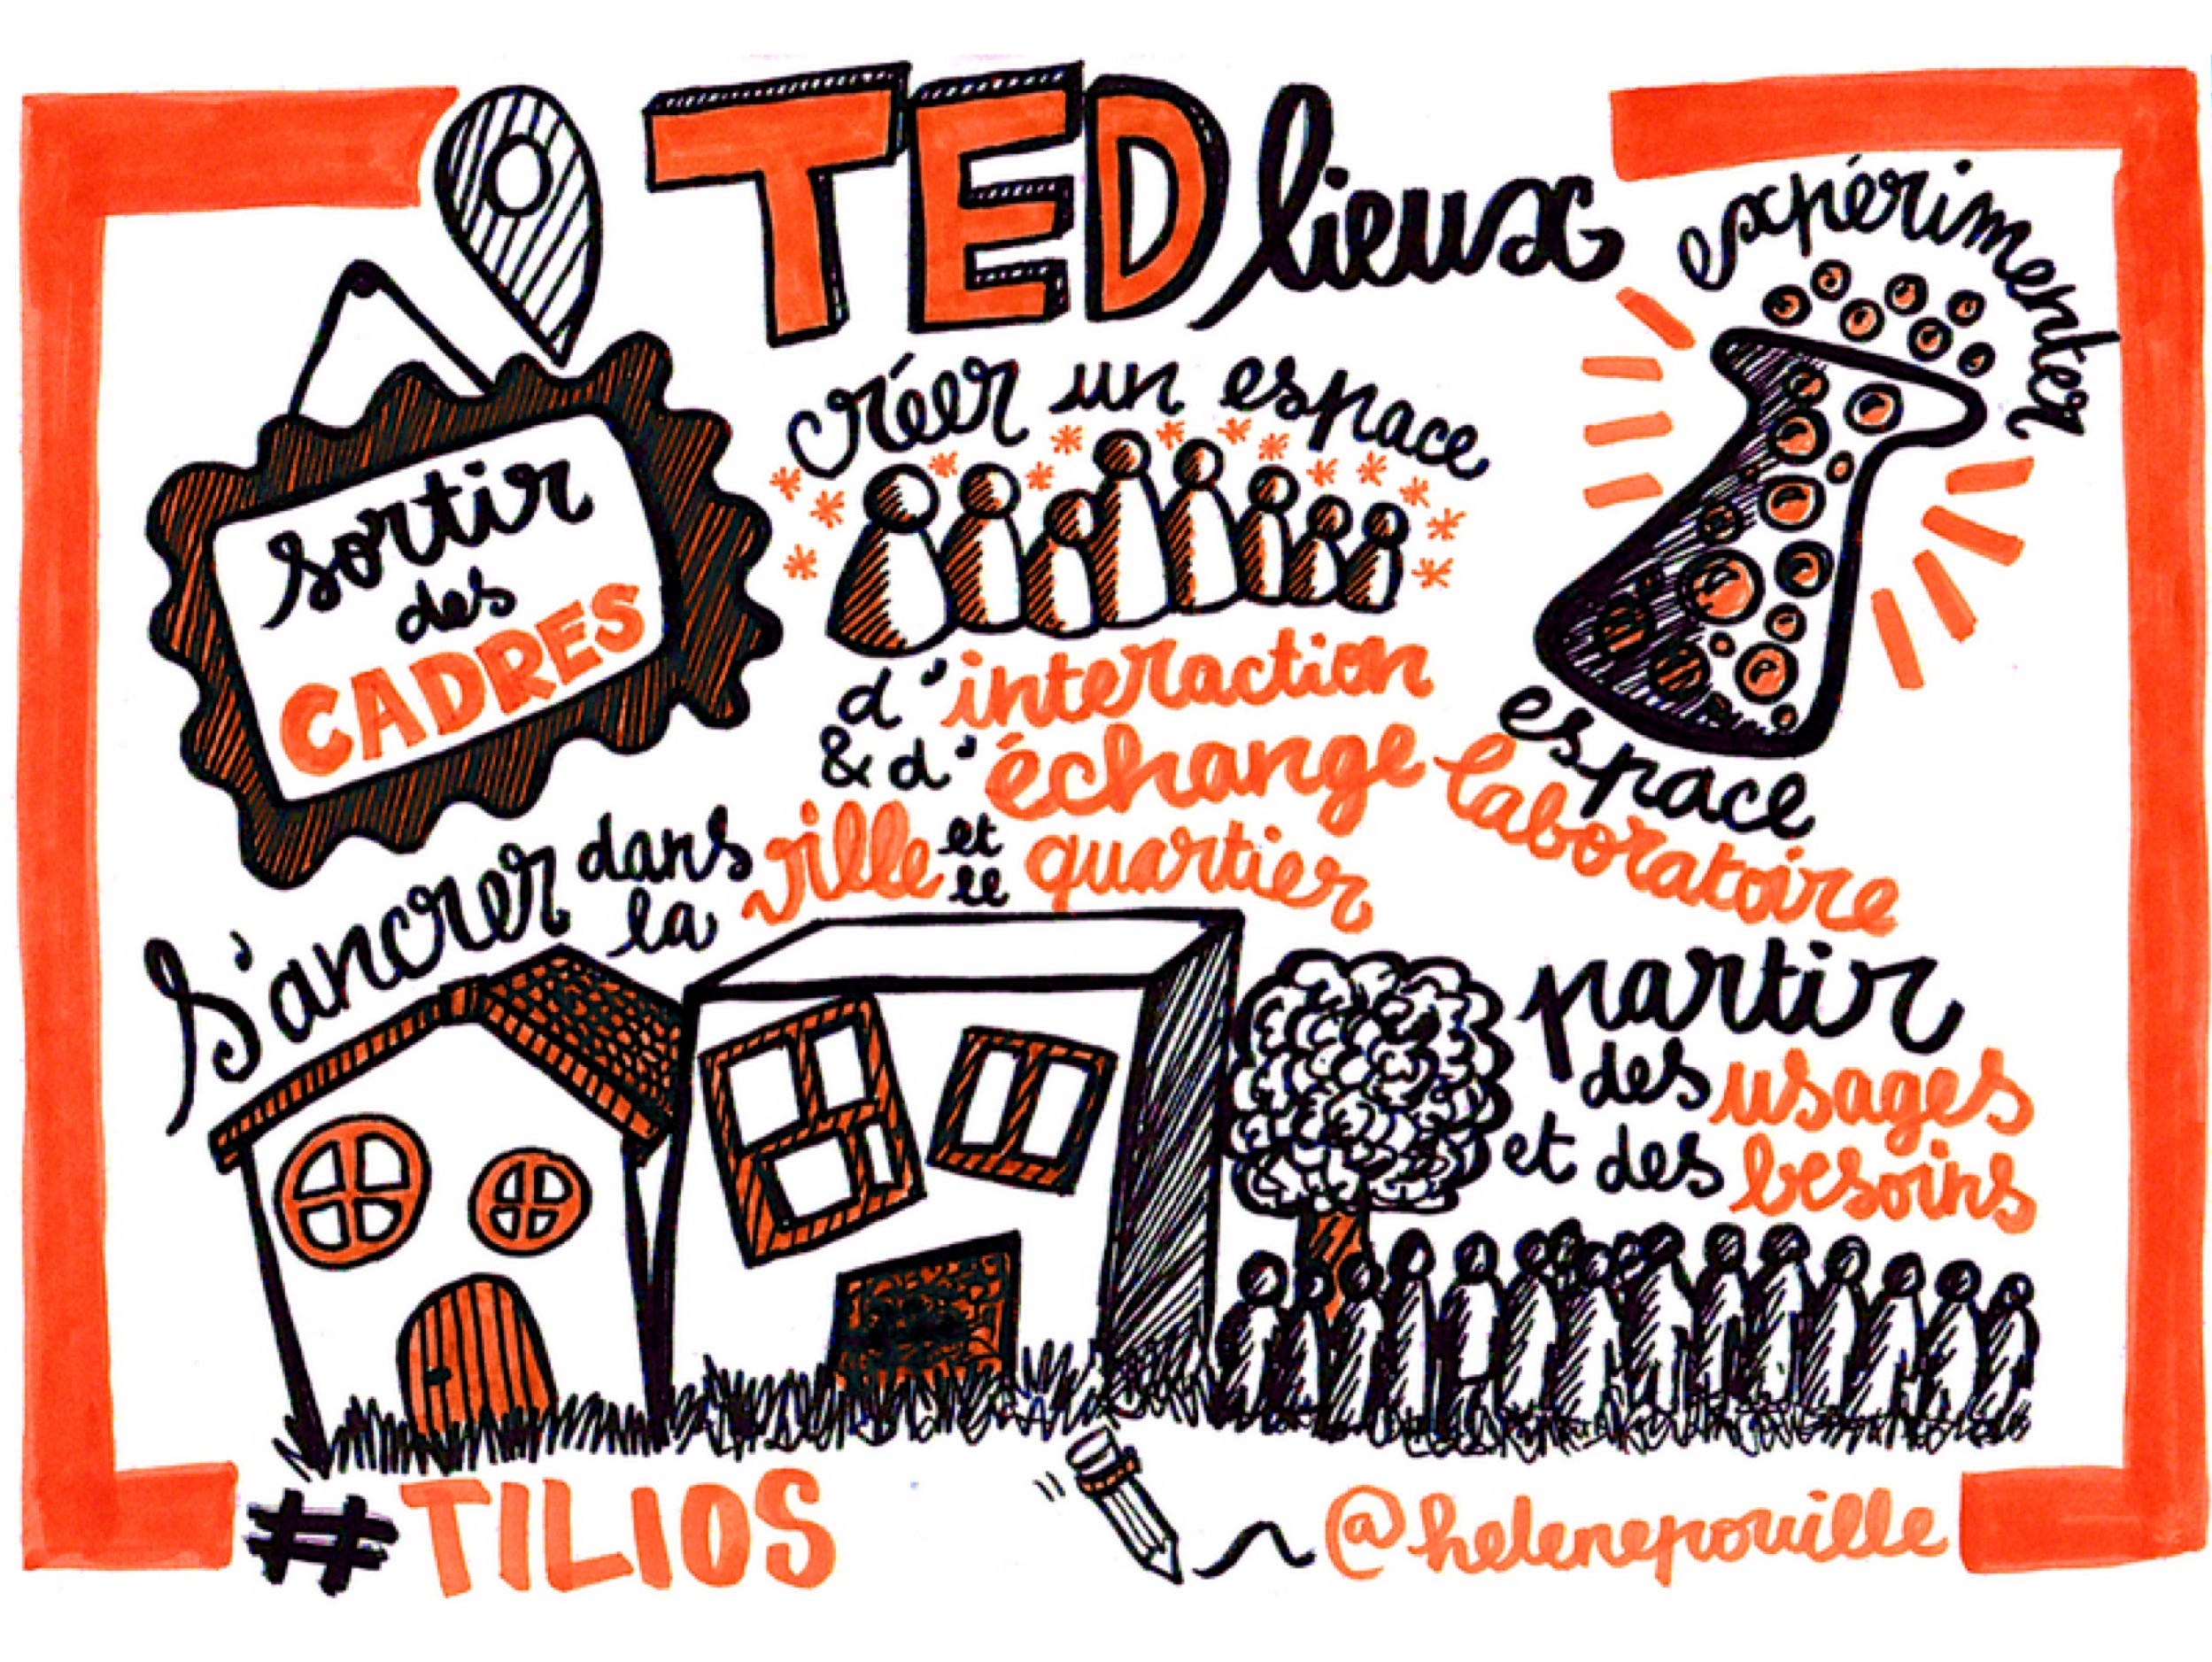 TED lieux
expérimenter
sortir
des
CADRES
créer un espace
d'interaction
& d'échange
espace
laboratoire
S'ancrer dans
la ville et
le quartier
partir
des usages
et des besoins
#TILIOS
@helenepouille